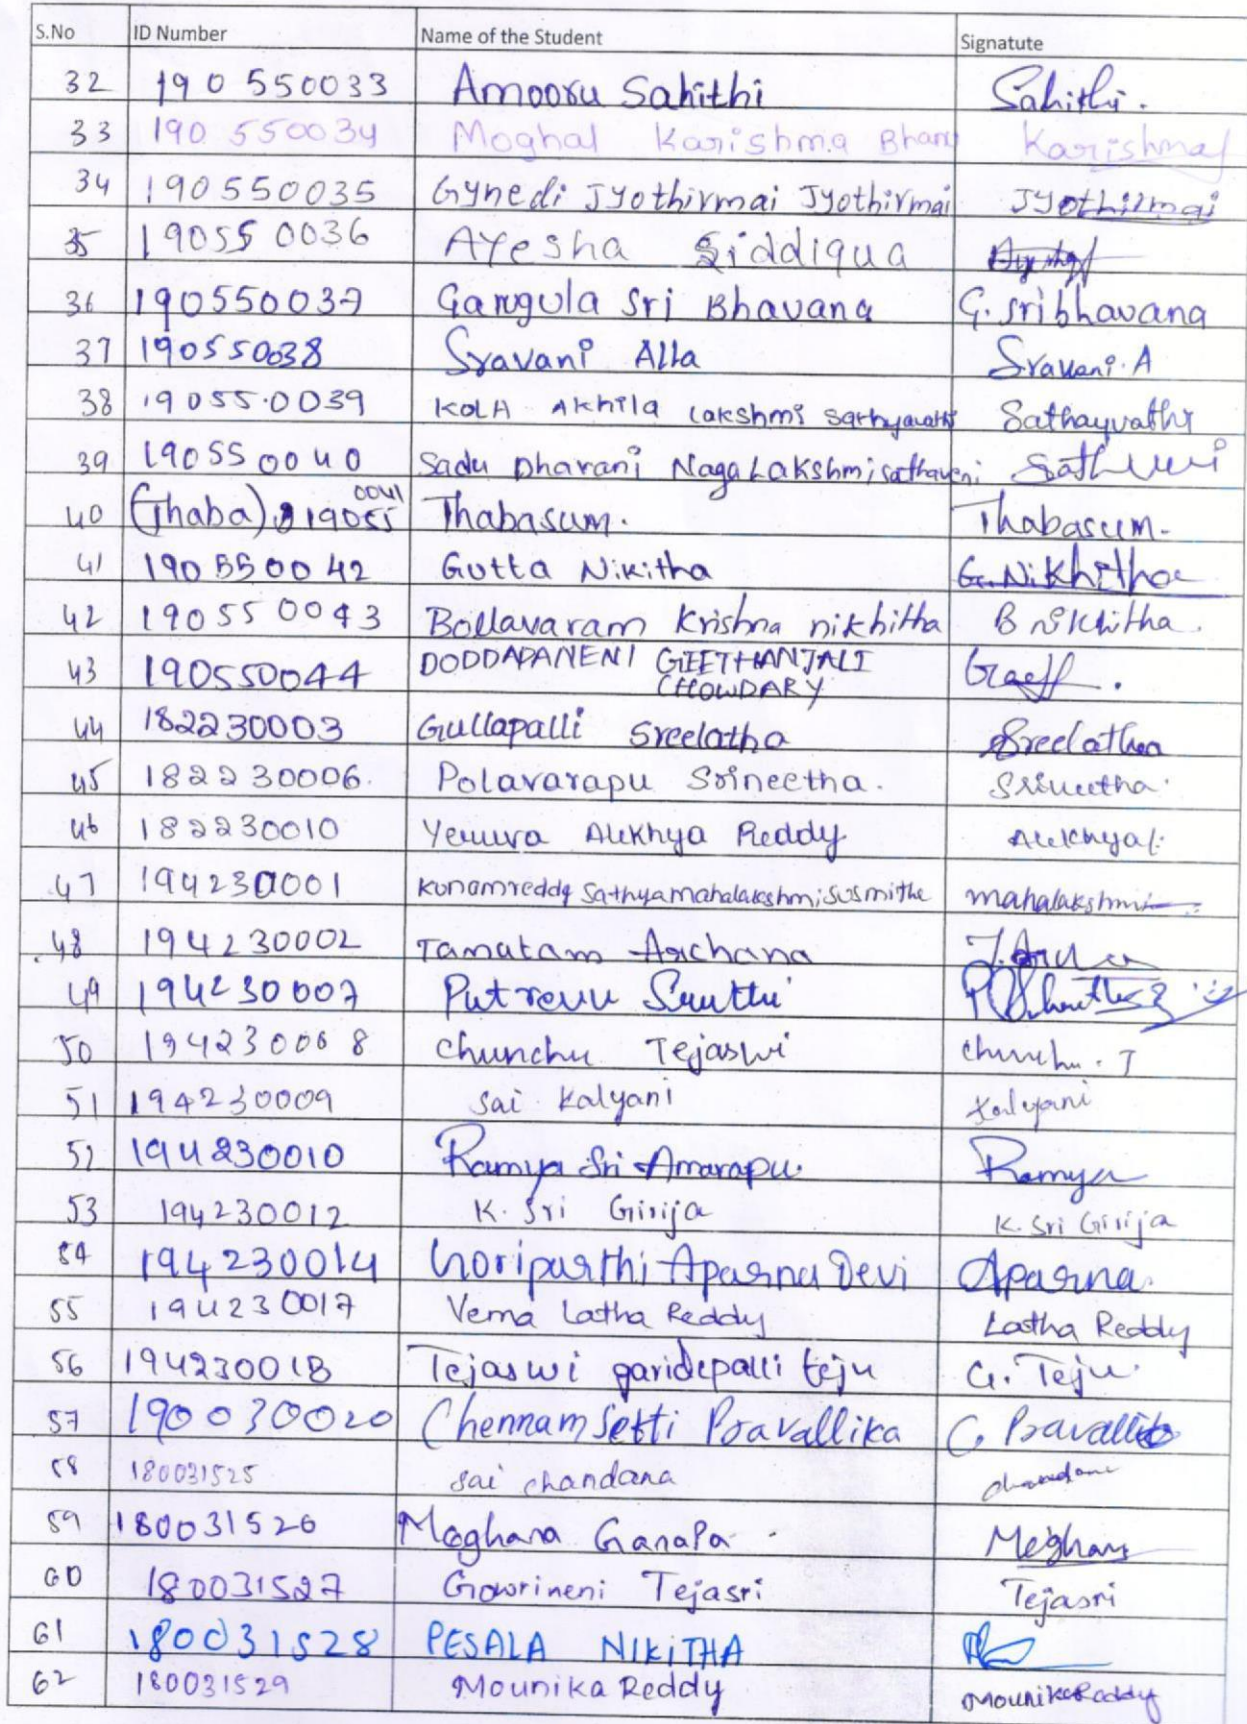 S.No ID Number Name of the Student Signatute
32 190550033 Amooru Sahithi Sahithi.
33 190550034 Moghal Karishma Bhanu Karishma
34 190550035 Gynedi Jyothirmai Jyothirmai Jyothirmai
35 190550036 Ayesha Siddiqua
36 190550037 Gangula Sri Bhavana G. Sribhavana
37 190550038 Sravani Alla Sravani. A
38 190550039 KOLA Akhila Lakshmi Sathyavathi Sathayvathi
39 190550040 Sadu Dharani Naga Lakshmi sathaveni
40 (Thaba) 190550041 Thabasum. Thabasum.
41 190550042 Gutta Nikitha G. Nikhitha
42 190550043 Bollavaram Krishna nikhitha B Nikhitha.
43 190550044 DODDAPANENI GEETHANJALI
CHOWDARY
44 182230003 Gullapalli Sreelatha Sreelatha
45 182230006. Polavarapu Srineetha. Srineetha.
46 182230010 Yeruva Alekhya Reddy Alekhya
47 194230001 Kunamreddy Sathyamahalakshmi Susmitha mahalakshmi
48 194230002 Tamatam Archana
49 194230007 Putrevu Sruthi
50 194230008 Chunchu Tejaswi Chunchu. T
51 194230009 Sai Kalyani Kalyani
52 194230010 Ramya Sri Amarapu. Ramya
53 194230012 K. Sri Girija K. Sri Girija
54 194230014 Goriparthi Aparna Devi Aparna.
55 194230017 Vema Latha Reddy Latha Reddy
56 194230018 Tejaswi garidepalli teju G. Teju.
57 190030020 Chennamsetti Pravallika C. Pravallika
58 180031525 Sai Chandana Chandana
59 180031526 Meghana Ganapa Meghana
60 180031527 Gowrineni Tejasri Tejasri
61 180031528 PESALA NIKITHA
62 180031529 Mounika Reddy Mounika Reddy